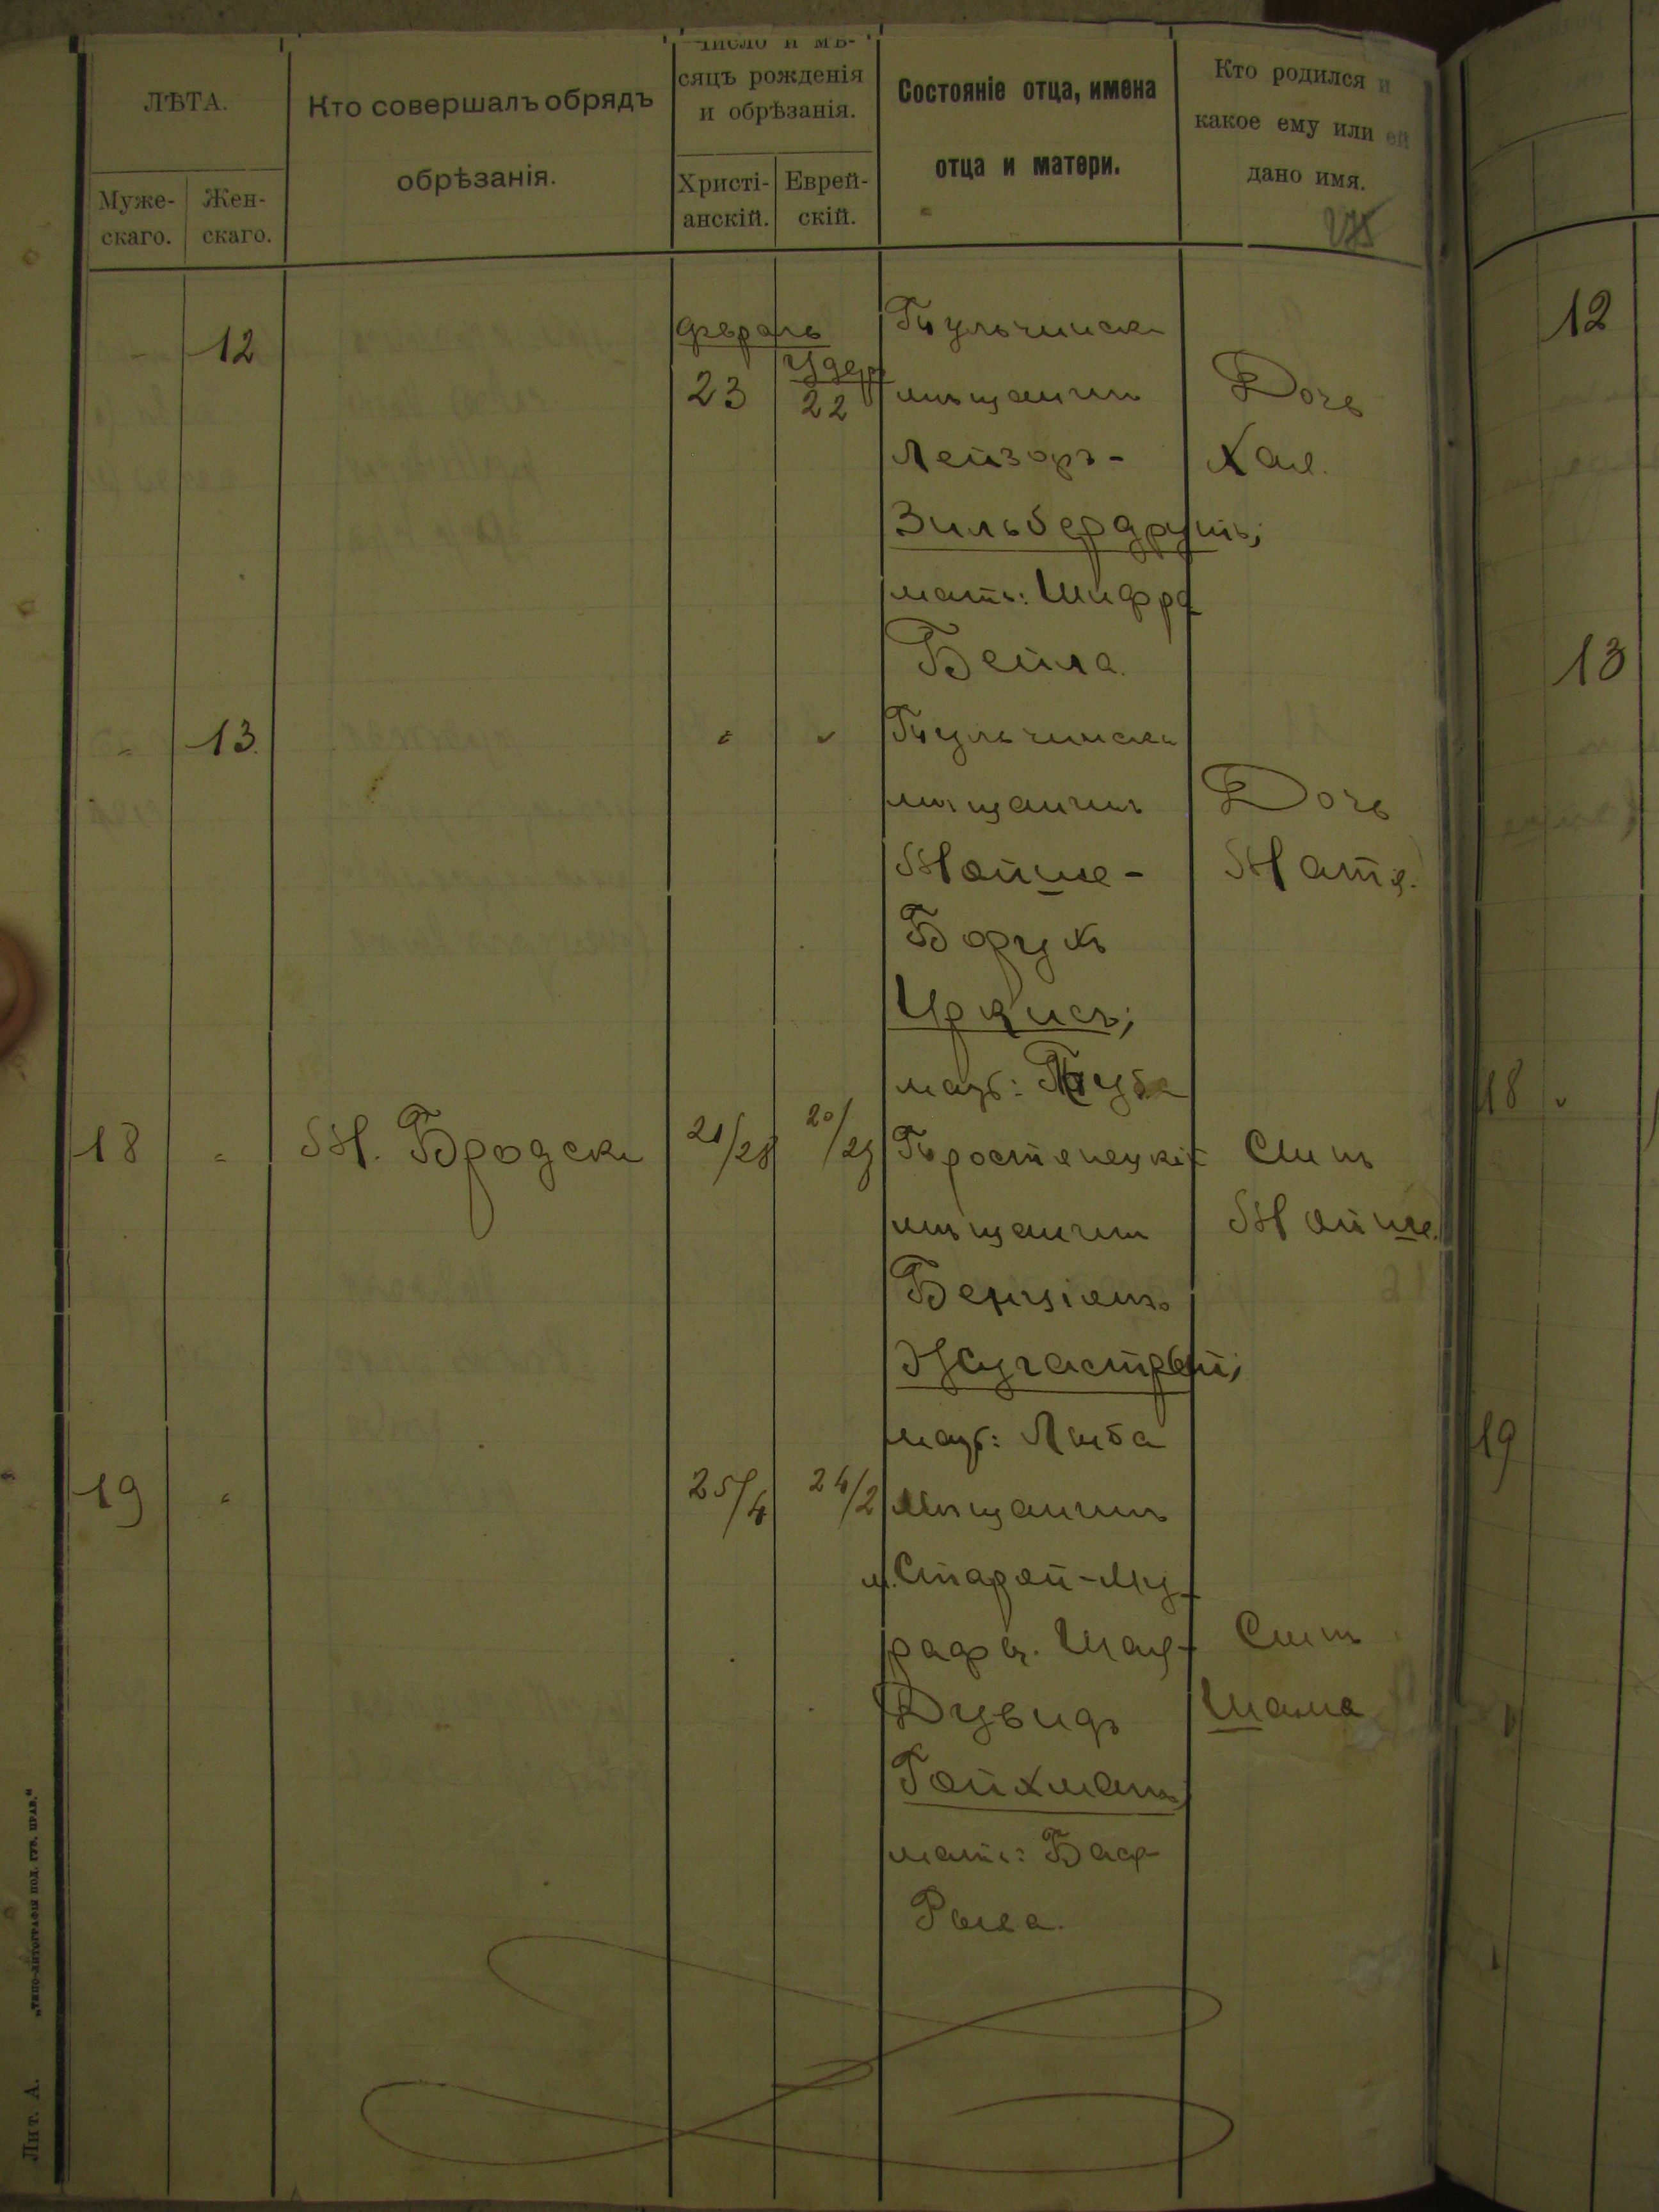 ЛѢТА.
Муже-
скаго.
Жен-
скаго.
Кто совершалъ обрядъ
обрѣзанія.
Число и мѣ-
сяцъ рожденія
и обрѣзанія.
Христі-
анскій.
Еврей-
скій.
Состояніе отца, имена
отца и матери.
Кто родился и
какое ему или ей
дано имя.
12
февраль
23
22
Тульчинскі
мѣщанинъ
Лейзоръ-
Зильбердрутъ;
мать: Шифра
Бейла.
Дочь
Хая.
13.
Тульчинскі
мѣщанинъ
Мойше-
Борухъ
мать: Туба
Дочь
Матя.
18
М. Бродскі
21/28
20/
Тростянецкій
мѣщанинъ
Бенціонъ
мать: Люба
Сынъ
Мойше.
19
25/4
24/2
Мѣщанинъ
м. Старой-Му-
рафы. Шая-
Дувидъ
Гойхманъ;
мать: Бася-
Рыва.
Сынъ
Шама
12
13
18
19
Лит. А.
„Типо-литографія Под. Губ. Прав."